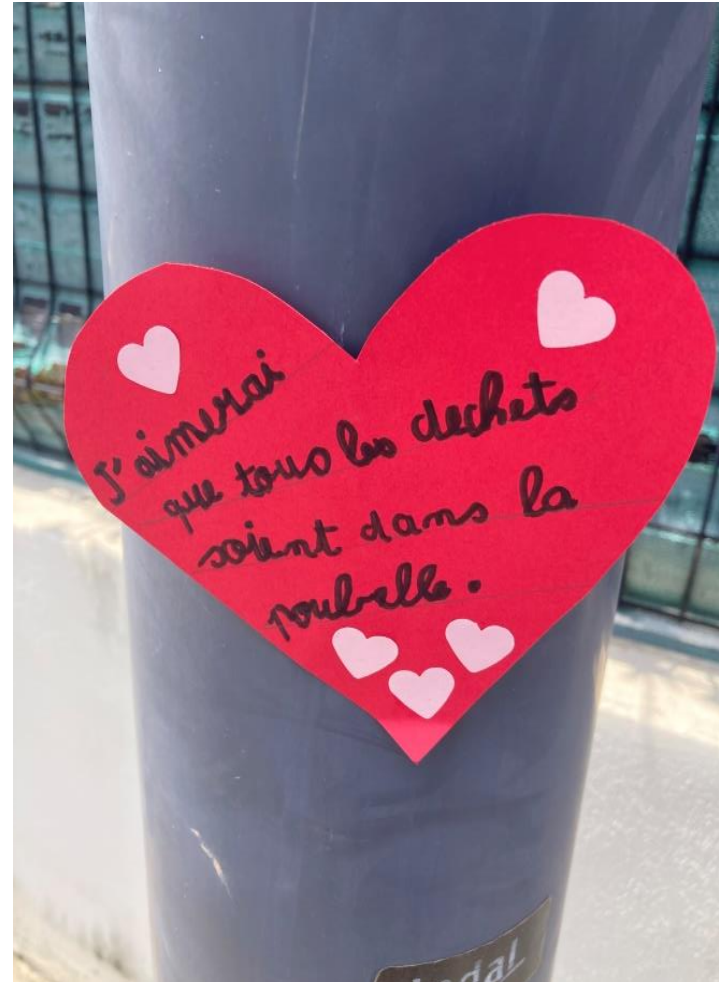 J'aimerai
que tous les dechets
soient dans la
poubelle.